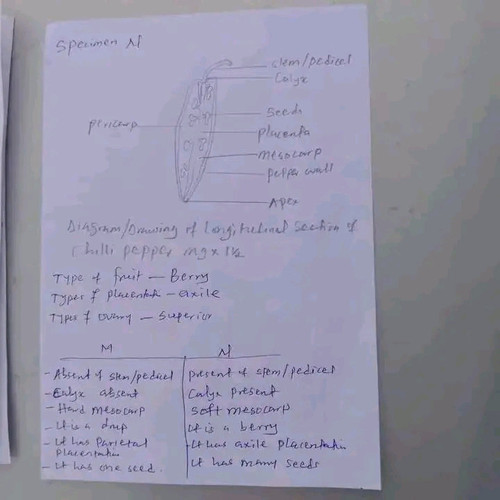 Specimen N
stem/pedicel
calyx
seeds
pericarp
placenta
mesocarp
pepper wall
Apex
Diagram/Drawing of longitudinal section of
chilli pepper mg x 1½
Type of fruit — Berry
Types of placentatn — axile
Types of ovary — Superior
M N
- Absent of stem/pedicel present of stem/pedicel
- Calyx absent Calyx present
- Hard mesocarp Soft mesocarp
- It is a drup It is a berry
- It has Parietal - It has axile placentatn
placentatn
- It has one seed. It has many seeds